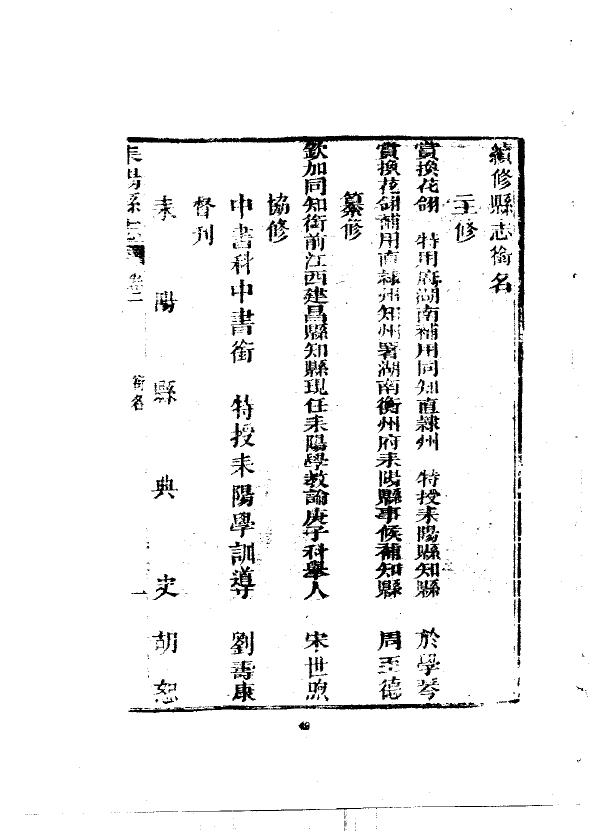 續修縣志銜名
主修
賞換花翎 特用府湖南補用同知直隸州 特授耒陽縣知縣 於學琴
賞換花翎補用直隸州知州署湖南衡州府耒陽縣事候補知縣 周至德
纂修
欽加同知銜前江西建昌縣知縣現任耒陽學教諭庚子科舉人 宋世煦
協修
中書科中書銜 特授耒陽學訓導 劉壽康
督刊
耒陽縣典史胡恕
耒陽縣志 卷二 銜名 一
49